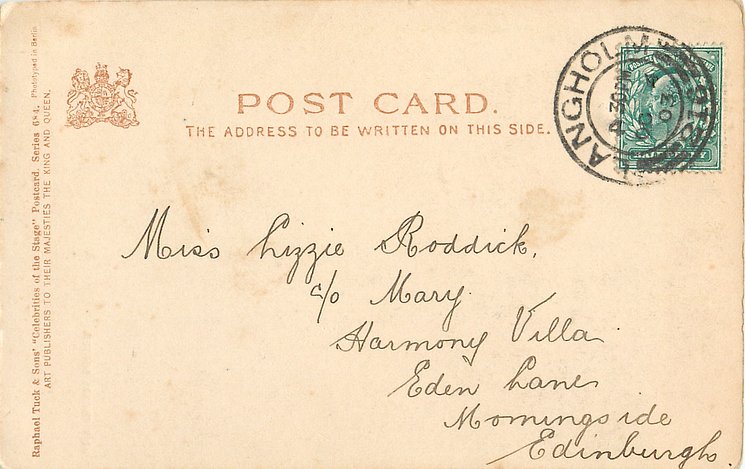 POST CARD.
THE ADDRESS TO BE WRITTEN ON THIS SIDE.
Raphael Tuck & Sons' "Celebrities of the Stage" Postcard. Series 684. Phototyped in Berlin
ART PUBLISHERS TO THEIR MAJESTIES THE KING AND QUEEN.
Miss Lizzie Roddick,
c/o Mary.
Harmony Villa
Eden Lane
Morningside
Edinburgh.